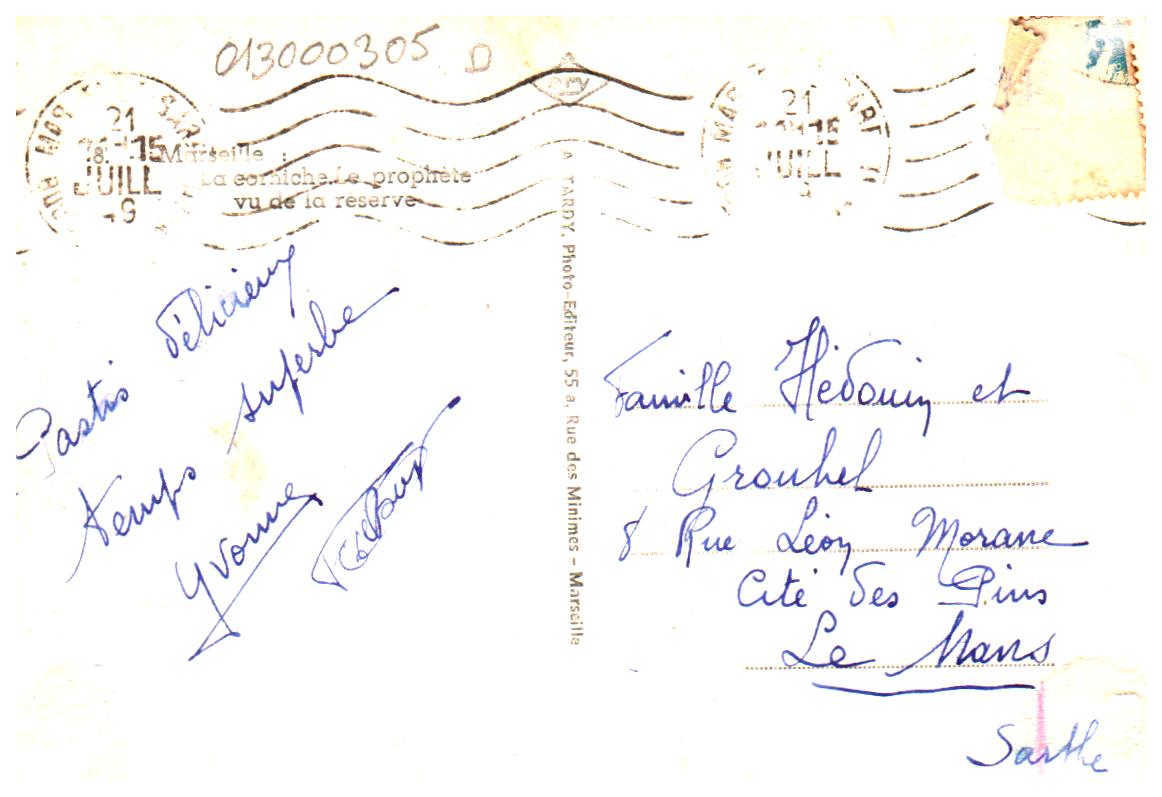 013000305 D
21
15
JUILL
21
15
JUILL
8. Marseille :
La corniche.Le prophète
vu de la reserve
A TARDY, Photo-Editeur, 55 a, Rue des Minimes - Marseille
Pastis délicieux
temps superbe
Yvonne
Famille Hédouin et
Grouhel
8 Rue Léon Morane
Cité des Pins
Le Mans
Sarthe